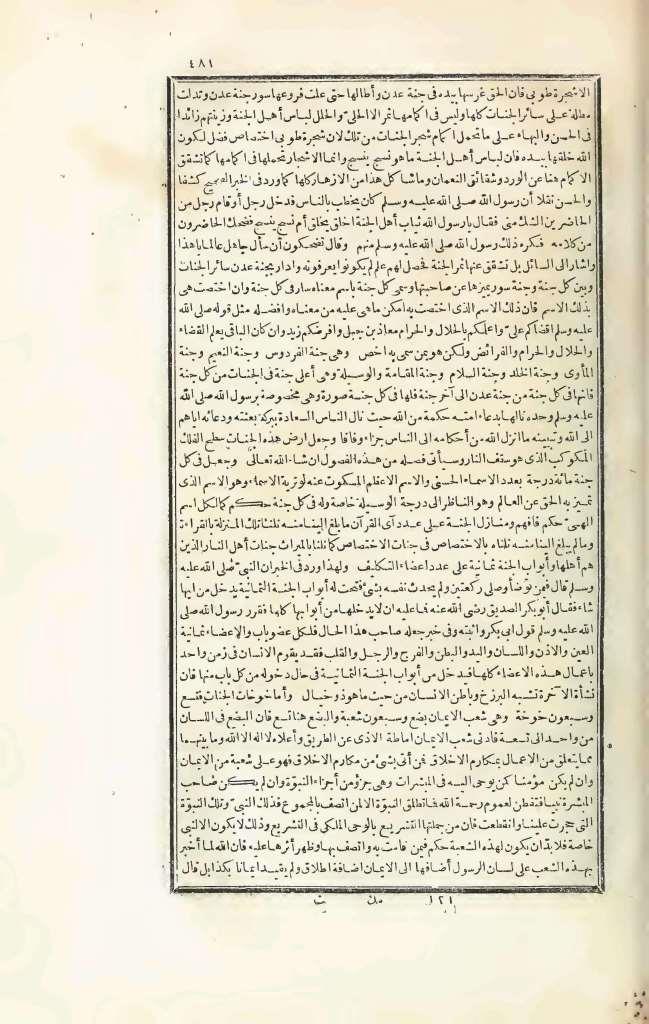 ٤٨١
الا شجرة طوبى فان الحق غرسها بيده فى جنة عدن وأطالها حتى علت فروعها سور جنة عدن وتدلت
مظللة على سائر الجنات كلها وليس فى اكمامها ثمر الا الحلىّ والحلل لباس أهل الجنة وزينتهم زائدا
فى الحسن والبهاء على ما تحمل اكمام شجر الجنات من ذلك لان شجرة طوبى اختصاص فضل لكون
الله خلقها بيده فان لباس أهل الجنة ما هو نسج ينسج وانما الاشجار تحملها فى اكمامها كما تشقق
الاكمام هنا عن الورد وشقائق النعمان وما شا كل هذا من الازهار كلها كما ورد فى الخبر الصحيح كشفا
والحسن نقلا أن رسول الله صلى الله عليه وسلم كان يخطب بالناس فدخل رجل أو قام رجل من
الحاضرين الشك منى فقال يا رسول الله ثياب أهل الجنة اخلق يخلق أم نسج ينسج فضحك الحاضرون
من كلامه فكره ذلك رسول الله صلى الله عليه وسلم منهم وقال تضحكون أن سأل جاهل عالما يا هذا
واشار الى السائل بل تشقق عنها ثمر الجنة فحصل لهم علم لم يكونوا يعرفونه وادار بجنة عدن سائر الجنات
وبين كل جنة وجنة سور يميزها عن صاحبتها وسمى كل جنة باسم معناه سار فى كل جنة وان اختصت هى
بذلك الاسم فان ذلك الاسم الذى اختصت به أمكن ما هى عليه من معناه وافضله مثل قوله صلى الله
عليه وسلم اقضاكم علىّ واعلمكم بالحلال والحرام معاذ بن جبل وافرضكم زيد وان كان الباقى يعلم القضاء
والحلال والحرام والفرائض ولكن هو بمن سمى به اخص وهى جنة الفردوس وجنة النعيم وجنة
المأوى وجنة الخلد وجنة السلام وجنة المقامة والوسيلة وهى أعلى جنة فى الجنات من كل جنة
فانها فى كل جنة من جنة عدن الى آخر جنة فلها فى كل جنة صورة وهى مخصوصة برسول الله صلى الله
عليه وسلم وحده نالها بدعاء امته حكمة من الله حيث نال الناس السعادة ببركة بعثته ودعائه اياهم
الى الله وتبيينه ما انزل الله من أحكامه الى الناس جزاء وفاقا وجعل ارض هذه الجنات سطح الفلك
المكوكب الذى هو سقف النار وسيأتى فصله من هذه الفصول ان شاء الله تعالى وجعل فى كل
جنة مائة درجة بعدد الاسماء الحسنى والاسم الاعظم المسكوت عنه لوترية الاسماء وهو الاسم الذى
تميز به الحق عن العالم وهو الناظر الى درجة الوسيلة خاصة وله فى كل جنة حكم كما لكل اسم
الهىّ حكم فافهم ومنازل الجنة على عدد آى القرآن ما بلغ الينا منه نلنا تلك المنزلة بالقراءة
وما لم يبلغ الينا منه نلناه بالاختصاص فى جنات الاختصاص كما نلنا بالميراث جنات أهل النار الذين
هم أهلها وأبواب الجنة ثمانية على عدد اعضاء التكليف ولهذا ورد فى الخبر ان النبىّ صلى الله عليه
وسلم قال فمن توضأ وصلى ركعتين ولم يحدث نفسه بشئ فتحت له أبواب الجنة الثمانية يدخل من ايها
شاء فقال أبو بكر الصديق رضى الله عنه فما عليه ان لا يدخلها من أبوابها كلها فقرر رسول الله صلى
الله عليه وسلم قول ابى بكر واثبته وفى خبر جعله صاحب هذا الحال فلكل عضو باب والاعضاء ثمانية
العين والاذن واللسان واليد والبطن والفرج والرجل والقلب فقد يقوم الانسان فى زمن واحد
باعمال هذه الاعضاء كلها فيدخل من أبواب الجنة الثمانية فى حال دخوله من كل باب منها فان
نشأة الآخرة تشبه البرزخ وباطن الانسان من حيث ما هو ذو خيال وأما خوخات الجنات فتسع
وسبعون خوخة وهى شعب الايمان بضع وسبعون شعبة والبضع هنا تسع فان البضع فى اللسان
من واحد الى تسعة فأدنى شعب الايمان اماطة الاذى عن الطريق وأعلاه لا اله الا الله وما بينهما
مما يتعلق من الاعمال بمكارم الاخلاق فمن أتى بشئ من مكارم الاخلاق فهو على شعبة من الايمان
وان لم يكن مؤمنا كمن يوحى اليه فى المبشرات وهى جزؤ من أجزاء النبوّة وان لم يكن صاحب
المبشرة نبيا فتفطن لعموم رحمة الله فما تطلق النبوّة الا لمن اتصف بالمجموع فذلك النبىّ وتلك النبوّة
التى حجرت علينا وانقطعت فان من جملتها التشريع بالوحى الملكى فى التشريع وذلك لا يكون الا لنبى
خاصة فلا بدّ ان يكون لهذه الشعبة حكم فيمن قامت به واتصف بها وظهر أثرها عليه فان الله لما أخبر
بهذه الشعب على لسان الرسول أضافها الى الايمان اضافة اطلاق ولم يقيد ايمانا بكذا بل قال
١٢١ مك ت